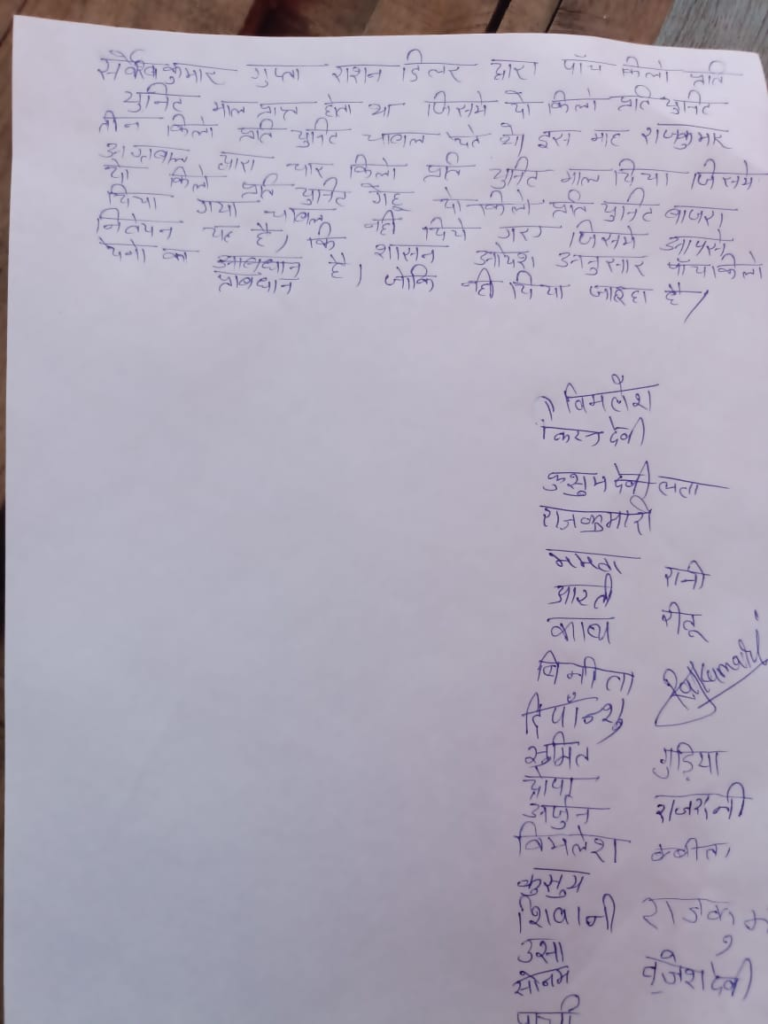 कुमार गुप्ता राशन डिलर द्वारा पाँच किलो प्रति
युनिट माल प्राप्त होता था जिसमे दो किलो प्रति युनिट
तीन किलो प्रति युनिट चावल देते थे। इस माह राजकुमार
अग्रवाल द्वारा चार किलो प्रति युनिट माल दिया जिसमे
दो किलो प्रति युनिट गेहू दो किलो प्रति युनिट बाजरा
दिया गया चावल नही दिये गए जिसमे आपसे
निवेदन यह है, कि शासन आदेश अनुसार पाँचकिलो
देनो का प्रावधान है। जोकि नही दिया जा रहा है।
विमलेश
किरन देवी
कुसुम देवी लता
राजकुमारी
ममता रानी
आरती रीतू
काव्य
बिनीता Rajkumari
दिपाँन्शु
सुमित गुड़िया
छाया
अर्जुन राजरानी
विमलेश कबीता
कुसुम
शिवानी राजकुम
उसा
सोनम वृजेश देवी
प्राची